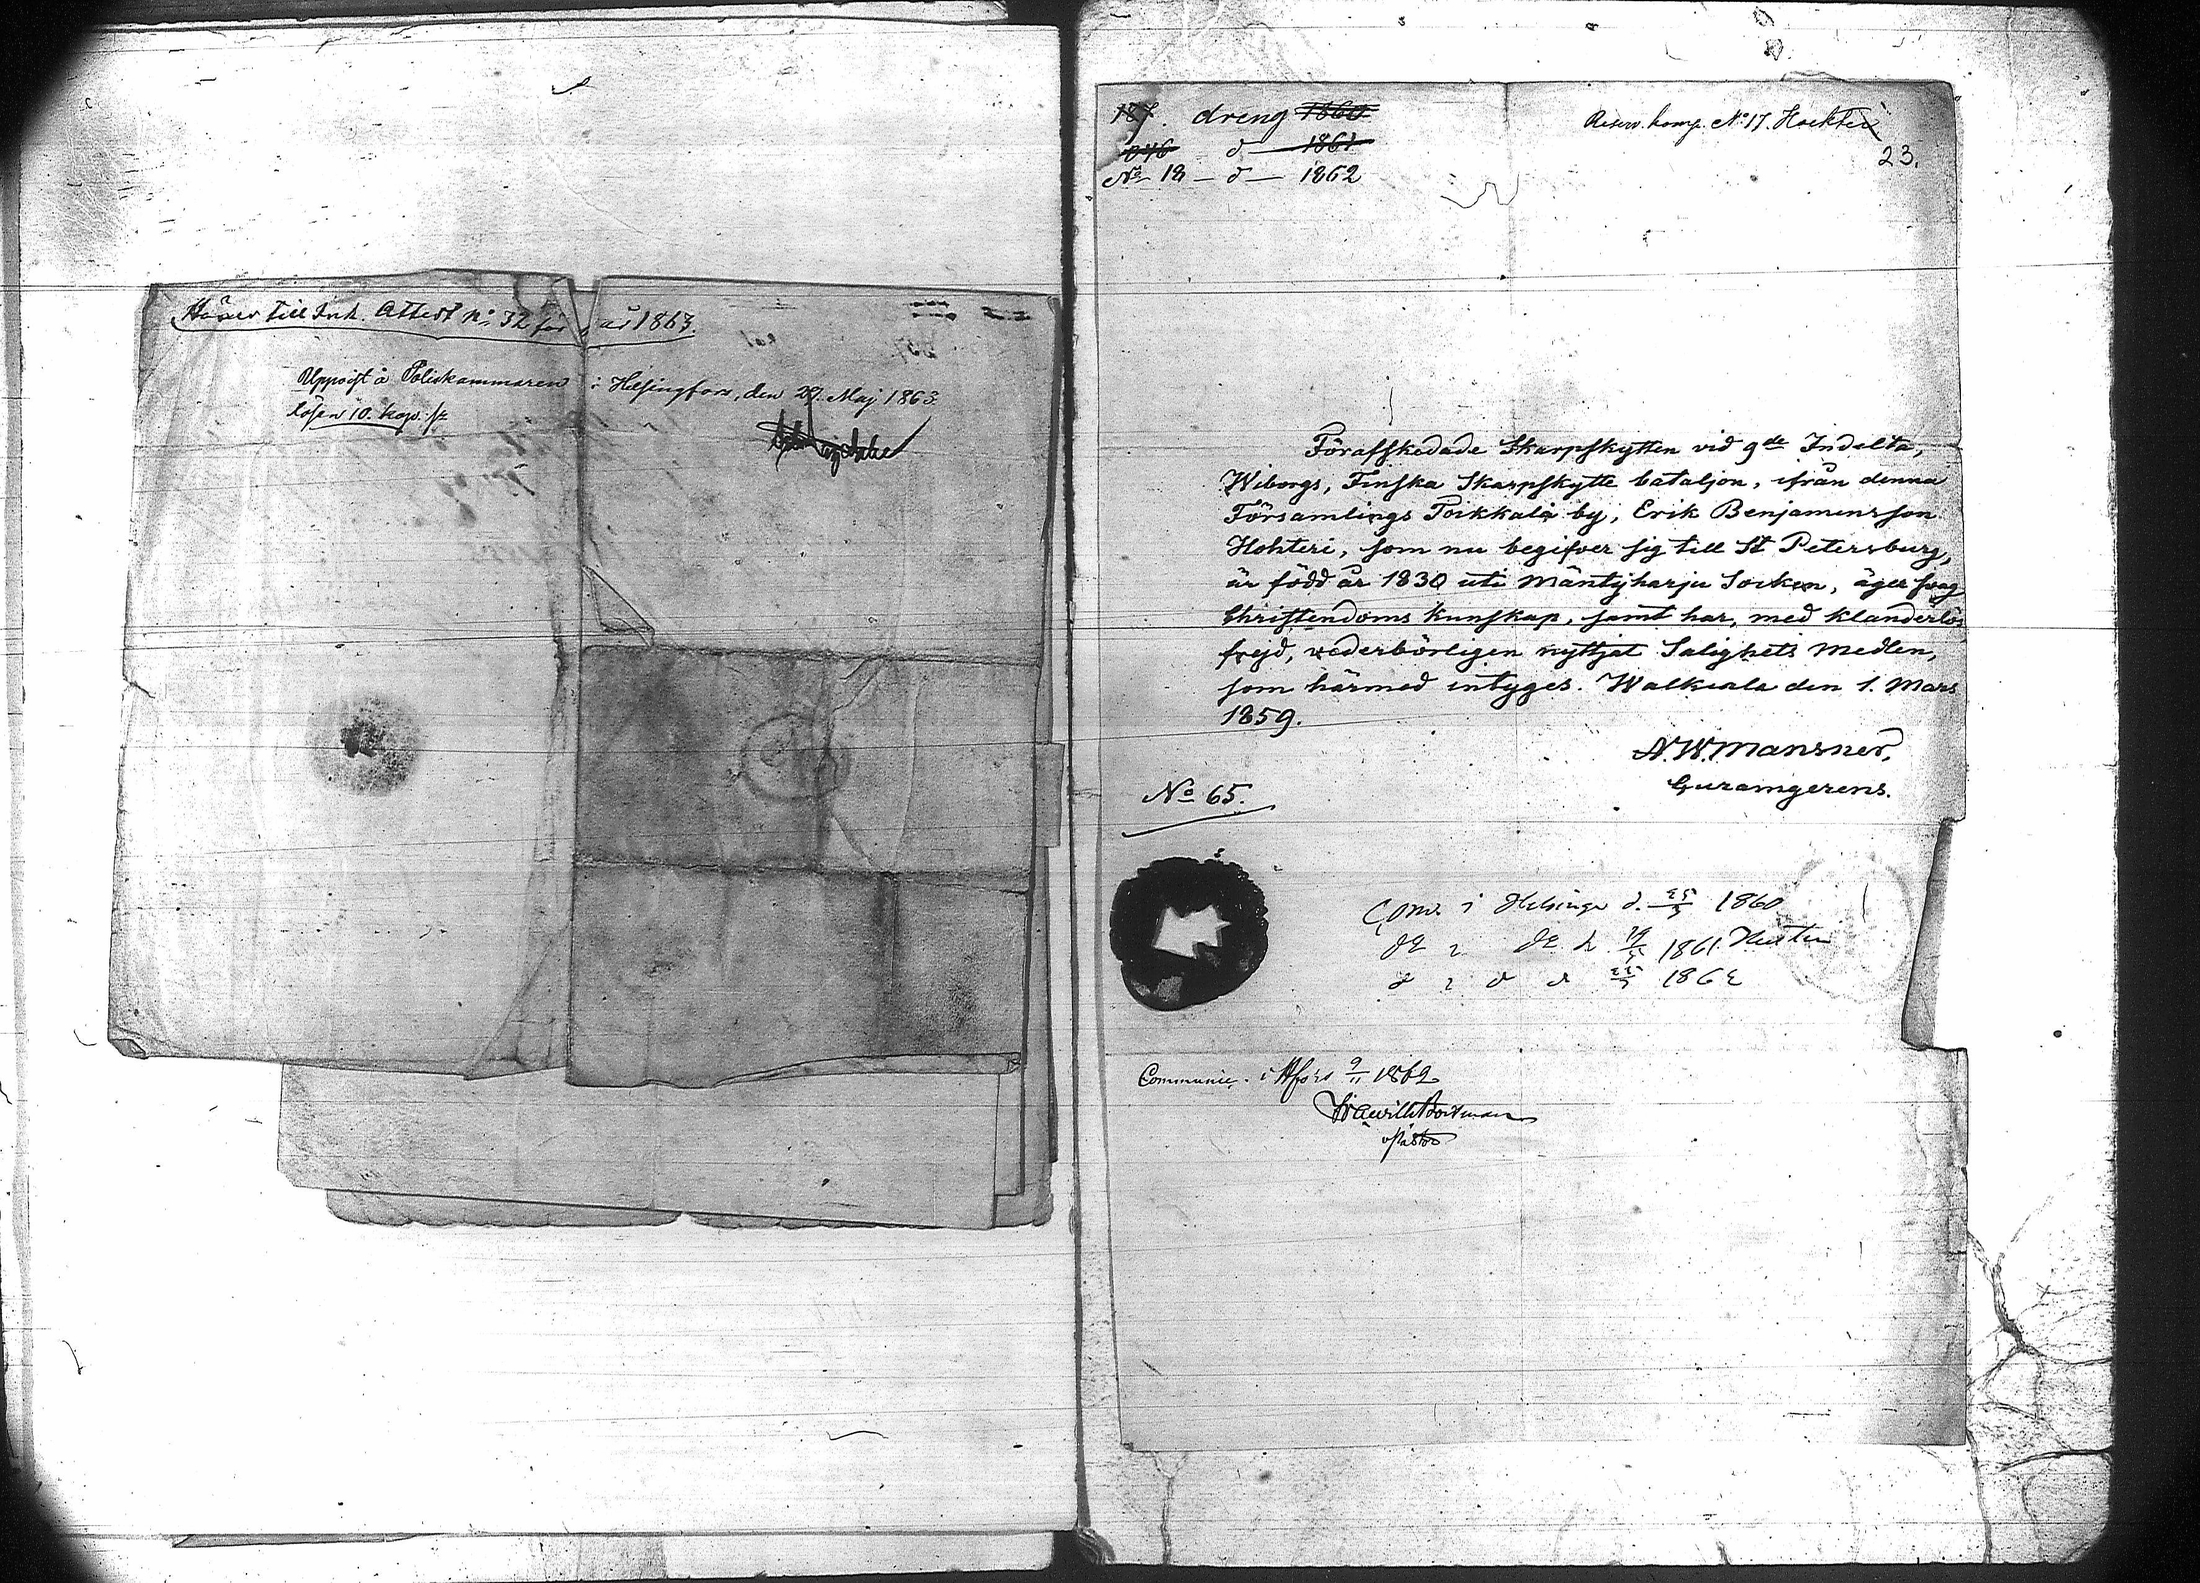 Hörer till Ink. Attest No 32 för år 1863.
Uppvist å Poliskammaren i Helsingfors, den 27. Maj 1863.
lösen 10. kop. sr
187. dreng 1860
046 d 1861
No 18 — d — 1862
Reserv. komp. No 17. Hockteri
23.
Förafskedade Skarpskytten vid 9de Indelta,
Wiborgs, Finska Skarpskytte bataljon, ifrån denna
Församlings Poikkala by, Erik Benjaminsson
Hohteri, som nu begifver sig till St Petersburg,
är född år 1830 uti Mäntyharju Socken, äger svag
Christendoms kunskap, samt har, med klanderlös
frejd, vederbörligen nyttjat Salighets medlen,
som härmed intyges. Walkeala den 1. Mars
1859.
A. W. Mansner,
Curamgerens.
No 65.
Com. i Helsinge d. 1860
1861
1862
Communic. i Hfors 9/11 1862
Pastor